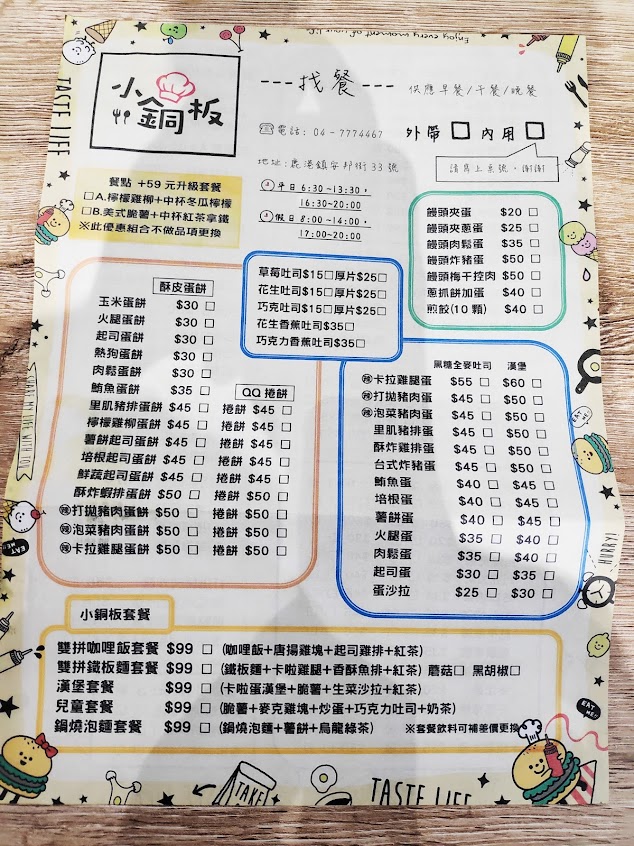 Enjoy every moment of your life
TASTE LIFE
小銅板
---找餐---
供應早餐/午餐/晚餐
電話: 04-7774467
外帶□ 內用□
地址:鹿港鎮安邦街33號
請寫上桌號,謝謝
平日 6:30~13:30,
16:30~20:00
假日 8:00~14:00,
17:00~20:00
餐點 +59 元升級套餐
□A.檸檬雞柳+中杯冬瓜檸檬
□B.美式脆薯+中杯紅茶拿鐵
※此優惠組合不做品項更換
饅頭夾蛋 $20 □
饅頭夾蔥蛋 $25 □
饅頭肉鬆蛋 $35 □
饅頭炸豬蛋 $50 □
饅頭梅干控肉 $50 □
蔥抓餅加蛋 $40 □
煎餃(10 顆) $40 □
草莓吐司$15□厚片$25□
花生吐司$15□厚片$25□
巧克吐司$15□厚片$25□
花生香蕉吐司$35□
巧克力香蕉吐司$35□
酥皮蛋餅
玉米蛋餅 $30 □
火腿蛋餅 $30 □
起司蛋餅 $30 □
熱狗蛋餅 $30 □
肉鬆蛋餅 $30 □
鮪魚蛋餅 $35 □
QQ 捲餅
里肌豬排蛋餅 $45 □ 捲餅 $45 □
檸檬雞柳蛋餅 $45 □ 捲餅 $45 □
薯餅起司蛋餅 $45 □ 捲餅 $45 □
培根起司蛋餅 $45 □ 捲餅 $45 □
鮮蔬起司蛋餅 $45 □ 捲餅 $45 □
酥炸蝦排蛋餅 $50 □ 捲餅 $50 □
辣打拋豬肉蛋餅 $50 □ 捲餅 $50 □
辣泡菜豬肉蛋餅 $50 □ 捲餅 $50 □
辣卡拉雞腿蛋餅 $50 □ 捲餅 $50 □
黑糖全麥吐司 漢堡
辣卡拉雞腿蛋 $55 □ $60 □
辣打拋豬肉蛋 $45 □ $50 □
辣泡菜豬肉蛋 $45 □ $50 □
里肌豬排蛋 $45 □ $50 □
酥炸雞排蛋 $45 □ $50 □
台式炸豬蛋 $45 □ $50 □
鮪魚蛋 $40 □ $45 □
培根蛋 $40 □ $45 □
薯餅蛋 $40 □ $45 □
火腿蛋 $35 □ $40 □
肉鬆蛋 $35 □ $40 □
起司蛋 $30 □ $35 □
蛋沙拉 $25 □ $30 □
小銅板套餐
雙拼咖哩飯套餐 $99 □ (咖哩飯+唐揚雞塊+起司雞排+紅茶)
雙拼鐵板麵套餐 $99 □ (鐵板麵+卡啦雞腿+香酥魚排+紅茶) 蘑菇□ 黑胡椒□
漢堡套餐 $99 □ (卡啦蛋漢堡+脆薯+生菜沙拉+紅茶)
兒童套餐 $99 □ (脆薯+麥克雞塊+炒蛋+巧克力吐司+奶茶)
鍋燒泡麵套餐 $99 □ (鍋燒泡麵+薯餅+烏龍綠茶) ※套餐飲料可補差價更換
EAT ME!
EAT ME!
HURRY!
EAT ME!
TAKE!
TASTE LIFE